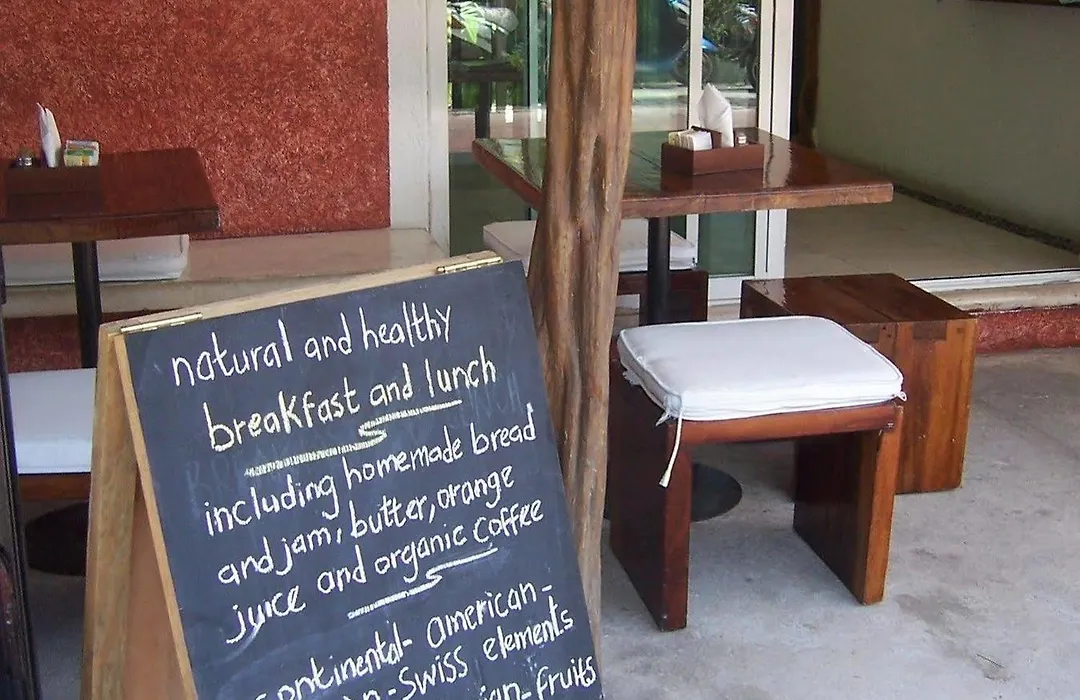 natural and healthy
breakfast and lunch
including homemade bread
and jam, butter, orange
juice and organic coffee
american-
-Swiss elements
-fruits